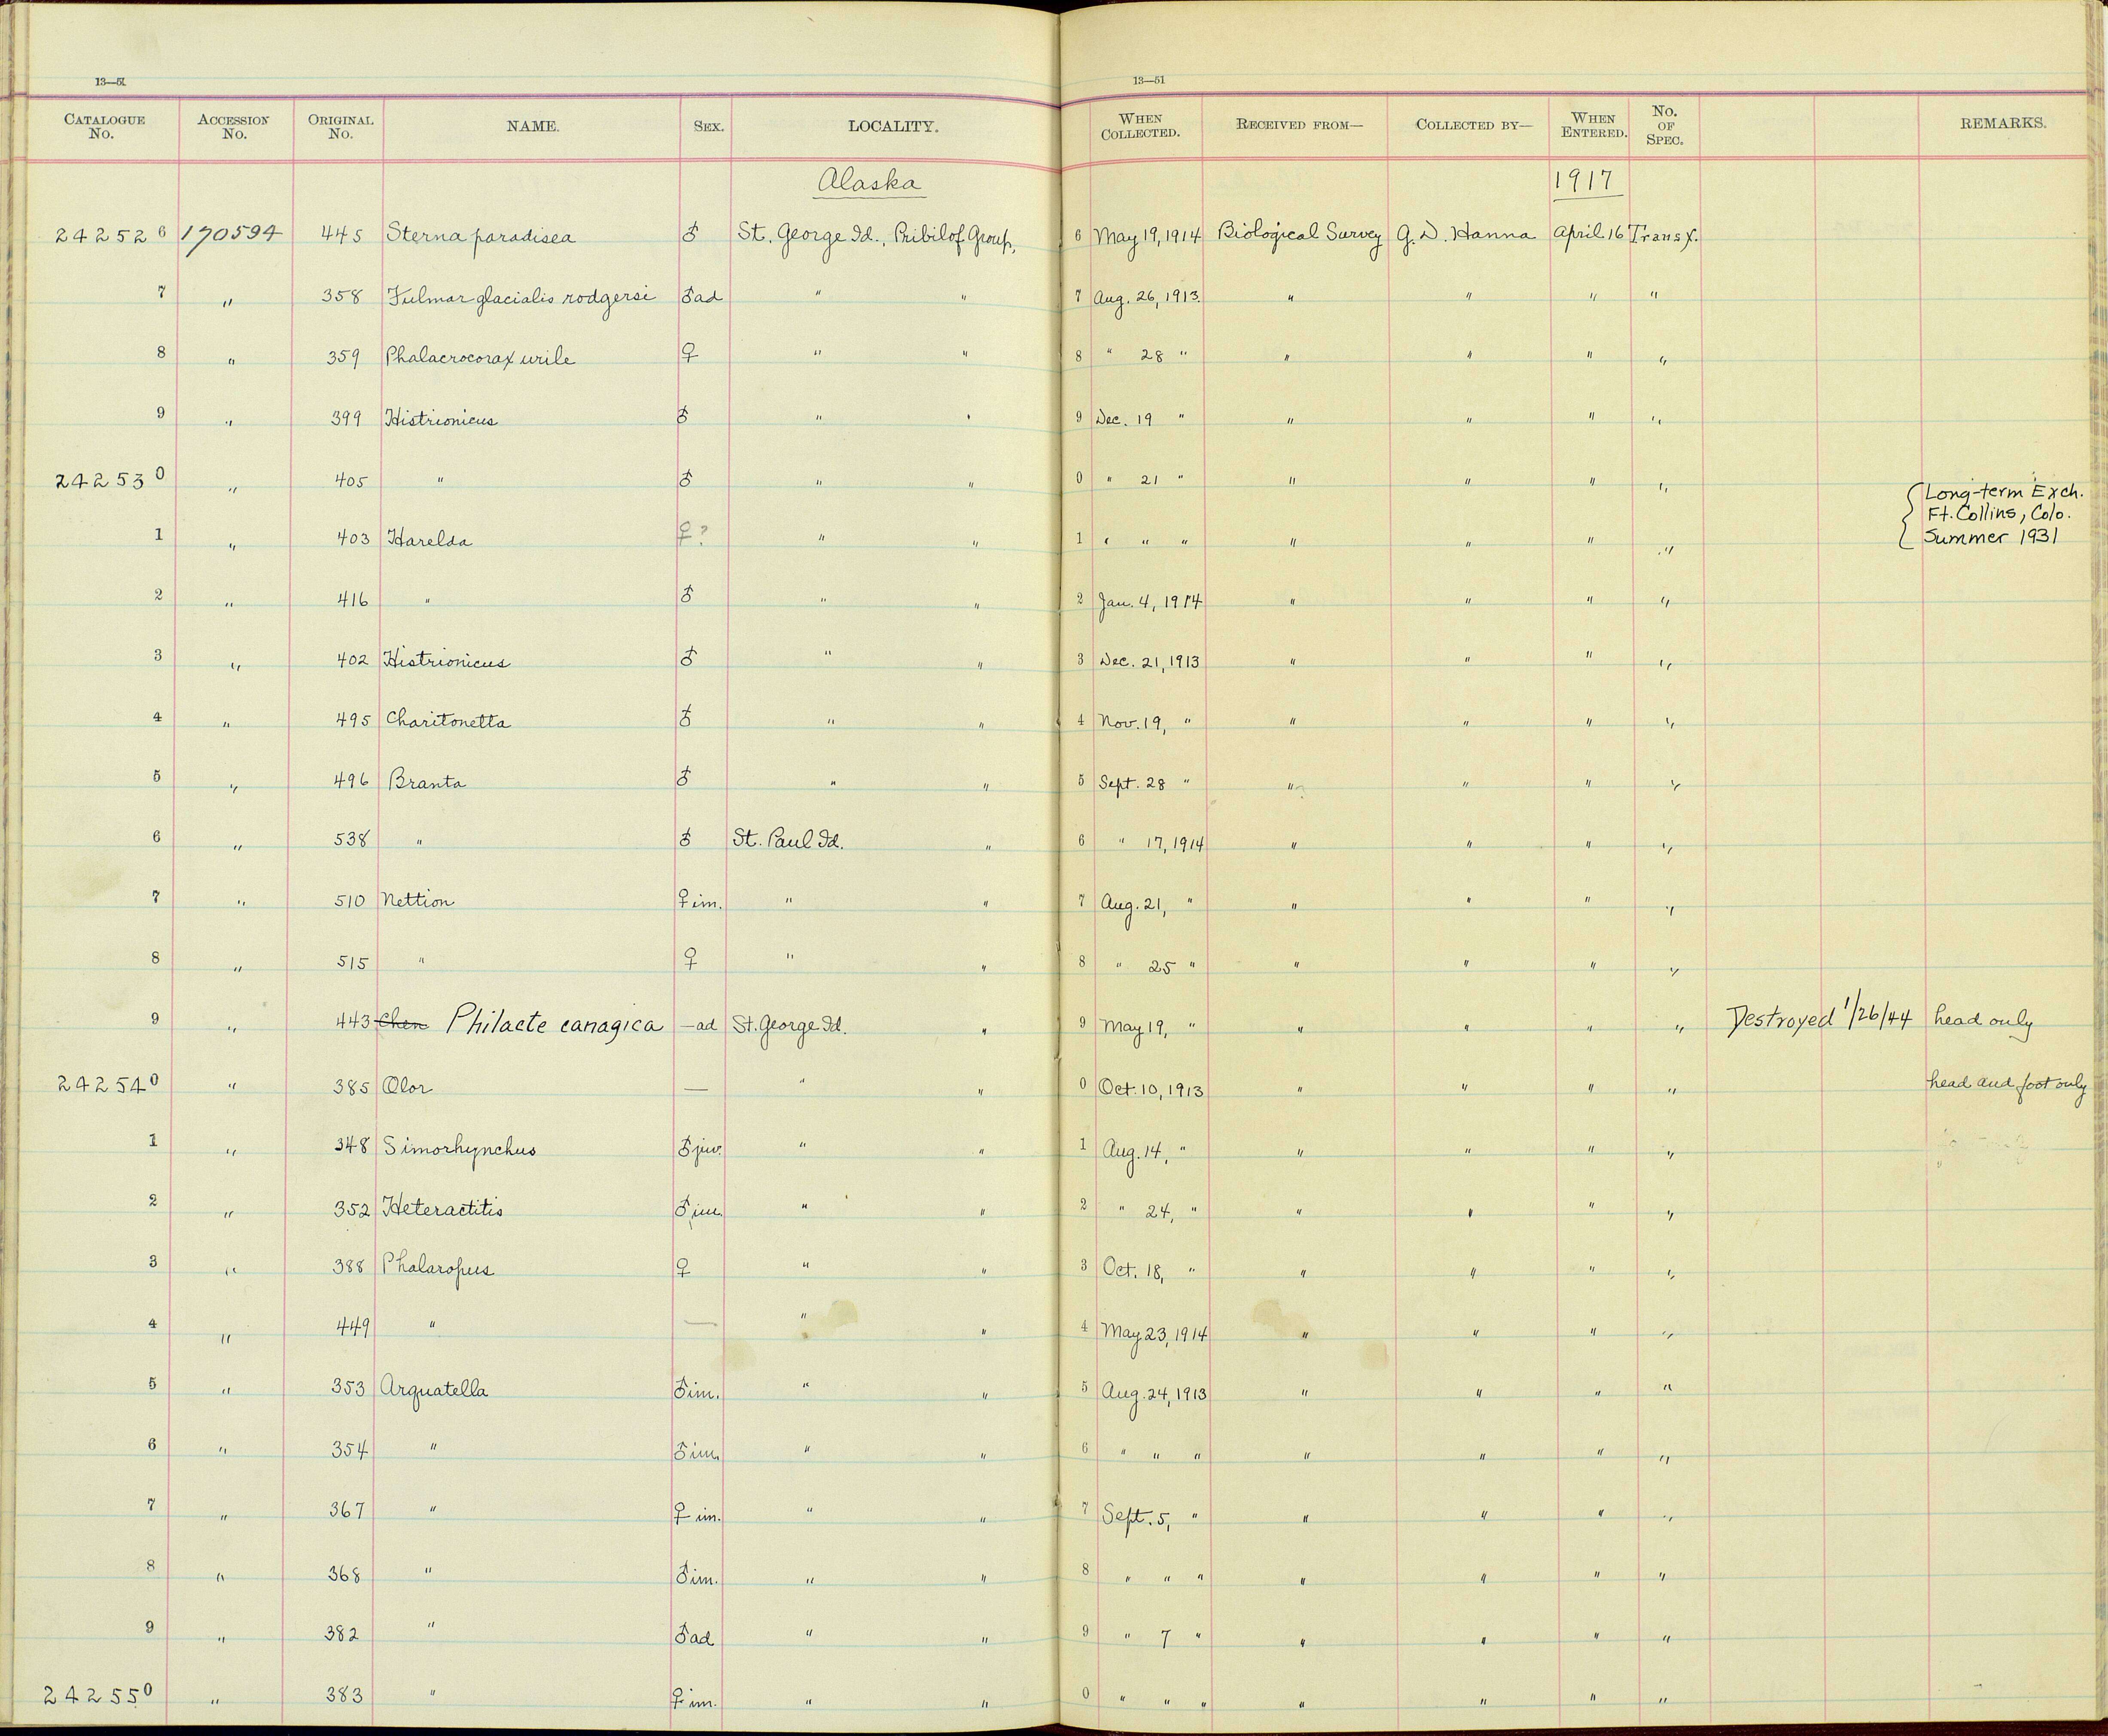 13—51 13—51
CATALOGUE No. ACCESSION No. ORIGINAL No. NAME. SEX. LOCALITY. WHEN COLLECTED. RECEIVED FROM— COLLECTED BY— WHEN ENTERED. No. OF SPEC. REMARKS.
Alaska 1917
242526 170594 445 Sterna paradisea ♂ St. George Id., Pribilof Group, 6 May 19, 1914 Biological Survey G. D. Hanna April 16 Transf.
7 " 358 Fulmar glacialis rodgersi ♂ad " " 7 Aug. 26, 1913. " " " "
8 " 359 Phalacrocorax urile ♀ " " 8 " 28 " " " " "
9 " 399 Histrionicus ♂ " " 9 Dec. 19 " " " " "
242530 " 405 " ♂ " " 0 " 21 " " " " "
Long-term Exch.
Ft. Collins, Colo.
Summer 1931
1 " 403 Harelda ♀? " " 1 " " " " " " "
2 " 416 " ♂ " " 2 Jan. 4, 1914 " " " "
3 " 402 Histrionicus ♂ " " 3 Dec. 21, 1913 " " " "
4 " 495 Charitonetta ♂ " " 4 Nov. 19, " " " " "
5 " 496 Branta ♂ " " 5 Sept. 28 " " " " "
6 " 538 " ♂ St. Paul Id. " 6 " 17, 1914 " " " "
7 " 510 Nettion ♀im. " " 7 Aug. 21, " " " " "
8 " 515 " ♀ " " 8 " 25 " " " " "
9 " 443 Chen Philacte canagica —ad St. George Id. " 9 May 19, " " " " " Destroyed 1/26/44 head only
242540 " 385 Olor — " " 0 Oct. 10, 1913 " " " " head and foot only
1 " 348 Simorhynchus ♂juv. " " 1 Aug. 14, " " " " "
2 " 352 Heteractitis ♂im. " " 2 " 24, " " " " "
3 " 388 Phalaropus ♀ " " 3 Oct. 18, " " " " "
4 " 449 " — " " 4 May 23, 1914 " " " "
5 " 353 Arquatella ♂im. " " 5 Aug. 24, 1913 " " " "
6 " 354 " ♂im. " " 6 " " " " " " "
7 " 367 " ♀im. " " 7 Sept. 5, " " " " "
8 " 368 " ♂im. " " 8 " " " " " " "
9 " 382 " ♂ad " " 9 " 7 " " " " "
242550 " 383 " ♀im. " " 0 " " " " " " "